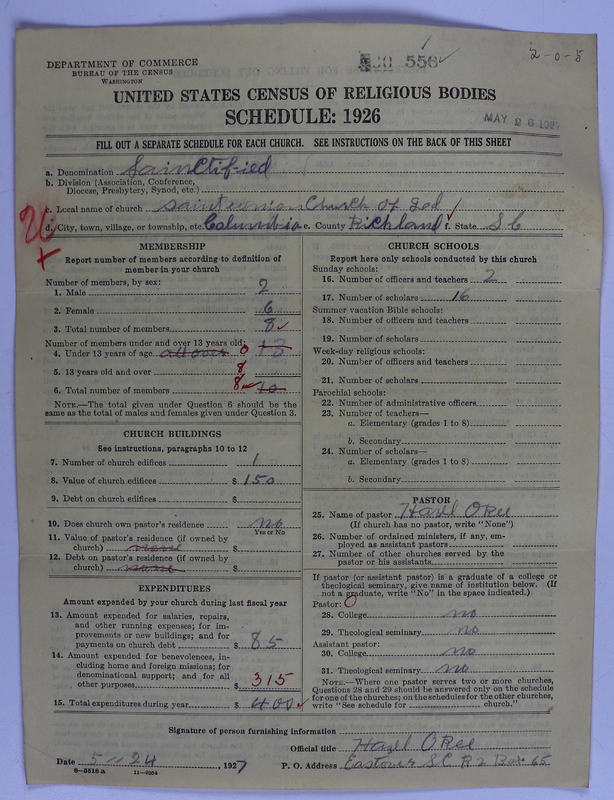 DEPARTMENT OF COMMERCE
BUREAU OF THE CENSUS
WASHINGTON
556
2-0-5
UNITED STATES CENSUS OF RELIGIOUS BODIES
SCHEDULE: 1926
MAY 26 1927
FILL OUT A SEPARATE SCHEDULE FOR EACH CHURCH. SEE INSTRUCTIONS ON THE BACK OF THIS SHEET
a. Denomination Sainctified
b. Division (Association, Conference, Diocese, Presbytery, Synod, etc.)
c. Local name of church Church of God
d. City, town, village, or township, etc. Columbia e. County Richland f. State S C
MEMBERSHIP
Report number of members according to definition of member in your church
Number of members, by sex:
1. Male 2
2. Female 6
3. Total number of members 8
Number of members under and over 13 years old:
4. Under 13 years of age all over 0
5. 13 years old and over 8
6. Total number of members 8 10
NOTE.—The total given under Question 6 should be the same as the total of males and females given under Question 3.
CHURCH BUILDINGS
See instructions, paragraphs 10 to 12
7. Number of church edifices 1
8. Value of church edifices $ 150
9. Debt on church edifices $
10. Does church own pastor's residence no
Yes or No
11. Value of pastor's residence (if owned by church) none $
12. Debt on pastor's residence (if owned by church) none $
EXPENDITURES
Amount expended by your church during last fiscal year
13. Amount expended for salaries, repairs, and other running expenses; for improvements or new buildings; and for payments on church debt $ 85
14. Amount expended for benevolences, including home and foreign missions; for denominational support; and for all other purposes $ 315
15. Total expenditures during year $ 400
CHURCH SCHOOLS
Report here only schools conducted by this church
Sunday schools:
16. Number of officers and teachers 2
17. Number of scholars 16
Summer vacation Bible schools:
18. Number of officers and teachers
19. Number of scholars
Week-day religious schools:
20. Number of officers and teachers
21. Number of scholars
Parochial schools:
22. Number of administrative officers
23. Number of teachers—
a. Elementary (grades 1 to 8)
b. Secondary
24. Number of scholars—
a. Elementary (grades 1 to 8)
b. Secondary
PASTOR
25. Name of pastor Hazel O Ree
(If church has no pastor, write "None")
26. Number of ordained ministers, if any, employed as assistant pastors
27. Number of other churches served by the pastor or his assistants
If pastor (or assistant pastor) is a graduate of a college or theological seminary, give name of institution below. (If not a graduate, write "No" in the space indicated.)
Pastor: 0
28. College no
29. Theological seminary no
Assistant pastor:
30. College no
31. Theological seminary no
NOTE.—Where one pastor serves two or more churches, Questions 28 and 29 should be answered only on the schedule for one of the churches; on the schedules for the other churches, write "See schedule for church."
Signature of person furnishing information
Official title Hazel O Ree
Date 5-24, 1927 P. O. Address Eastover S C R 2 Box 65
8-5518 a 11-9054